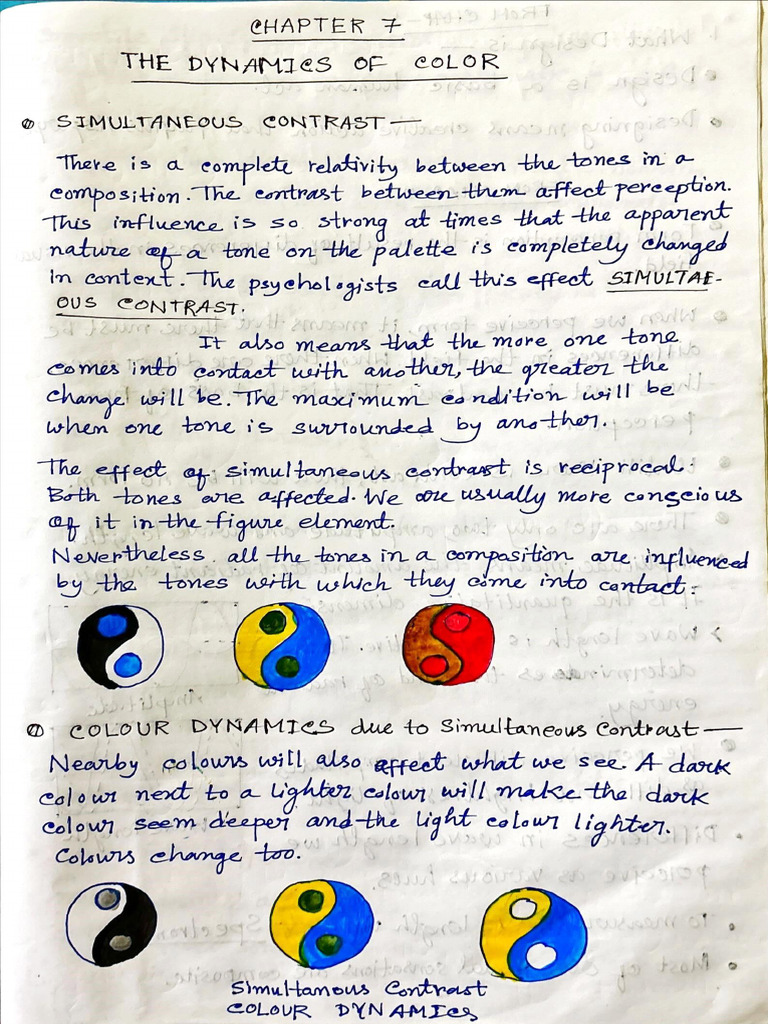 CHAPTER 7
THE DYNAMICS OF COLOR
SIMULTANEOUS CONTRAST —
There is a complete relativity between the tones in a
composition. The contrast between them affect perception.
This influence is so strong at times that the apparent
nature of a tone on the palette is completely changed
in context. The psychologists call this effect SIMULTAE-
OUS CONTRAST.
It also means that the more one tone
comes into contact with another, the greater the
change will be. The maximum condition will be
when one tone is surrounded by another.
The effect of simultaneous contrast is reciprocal.
Both tones are affected. We are usually more conscious
of it in the figure element.
Nevertheless. all the tones in a composition are influenced
by the tones with which they come into contact.
COLOUR DYNAMICS due to Simultaneous Contrast —
Nearby colours will also affect what we see. A dark
colour next to a lighter colour will make the dark
colour seem deeper and the light colour lighter.
Colours change too.
Simultanous Contrast
COLOUR DYNAMICS